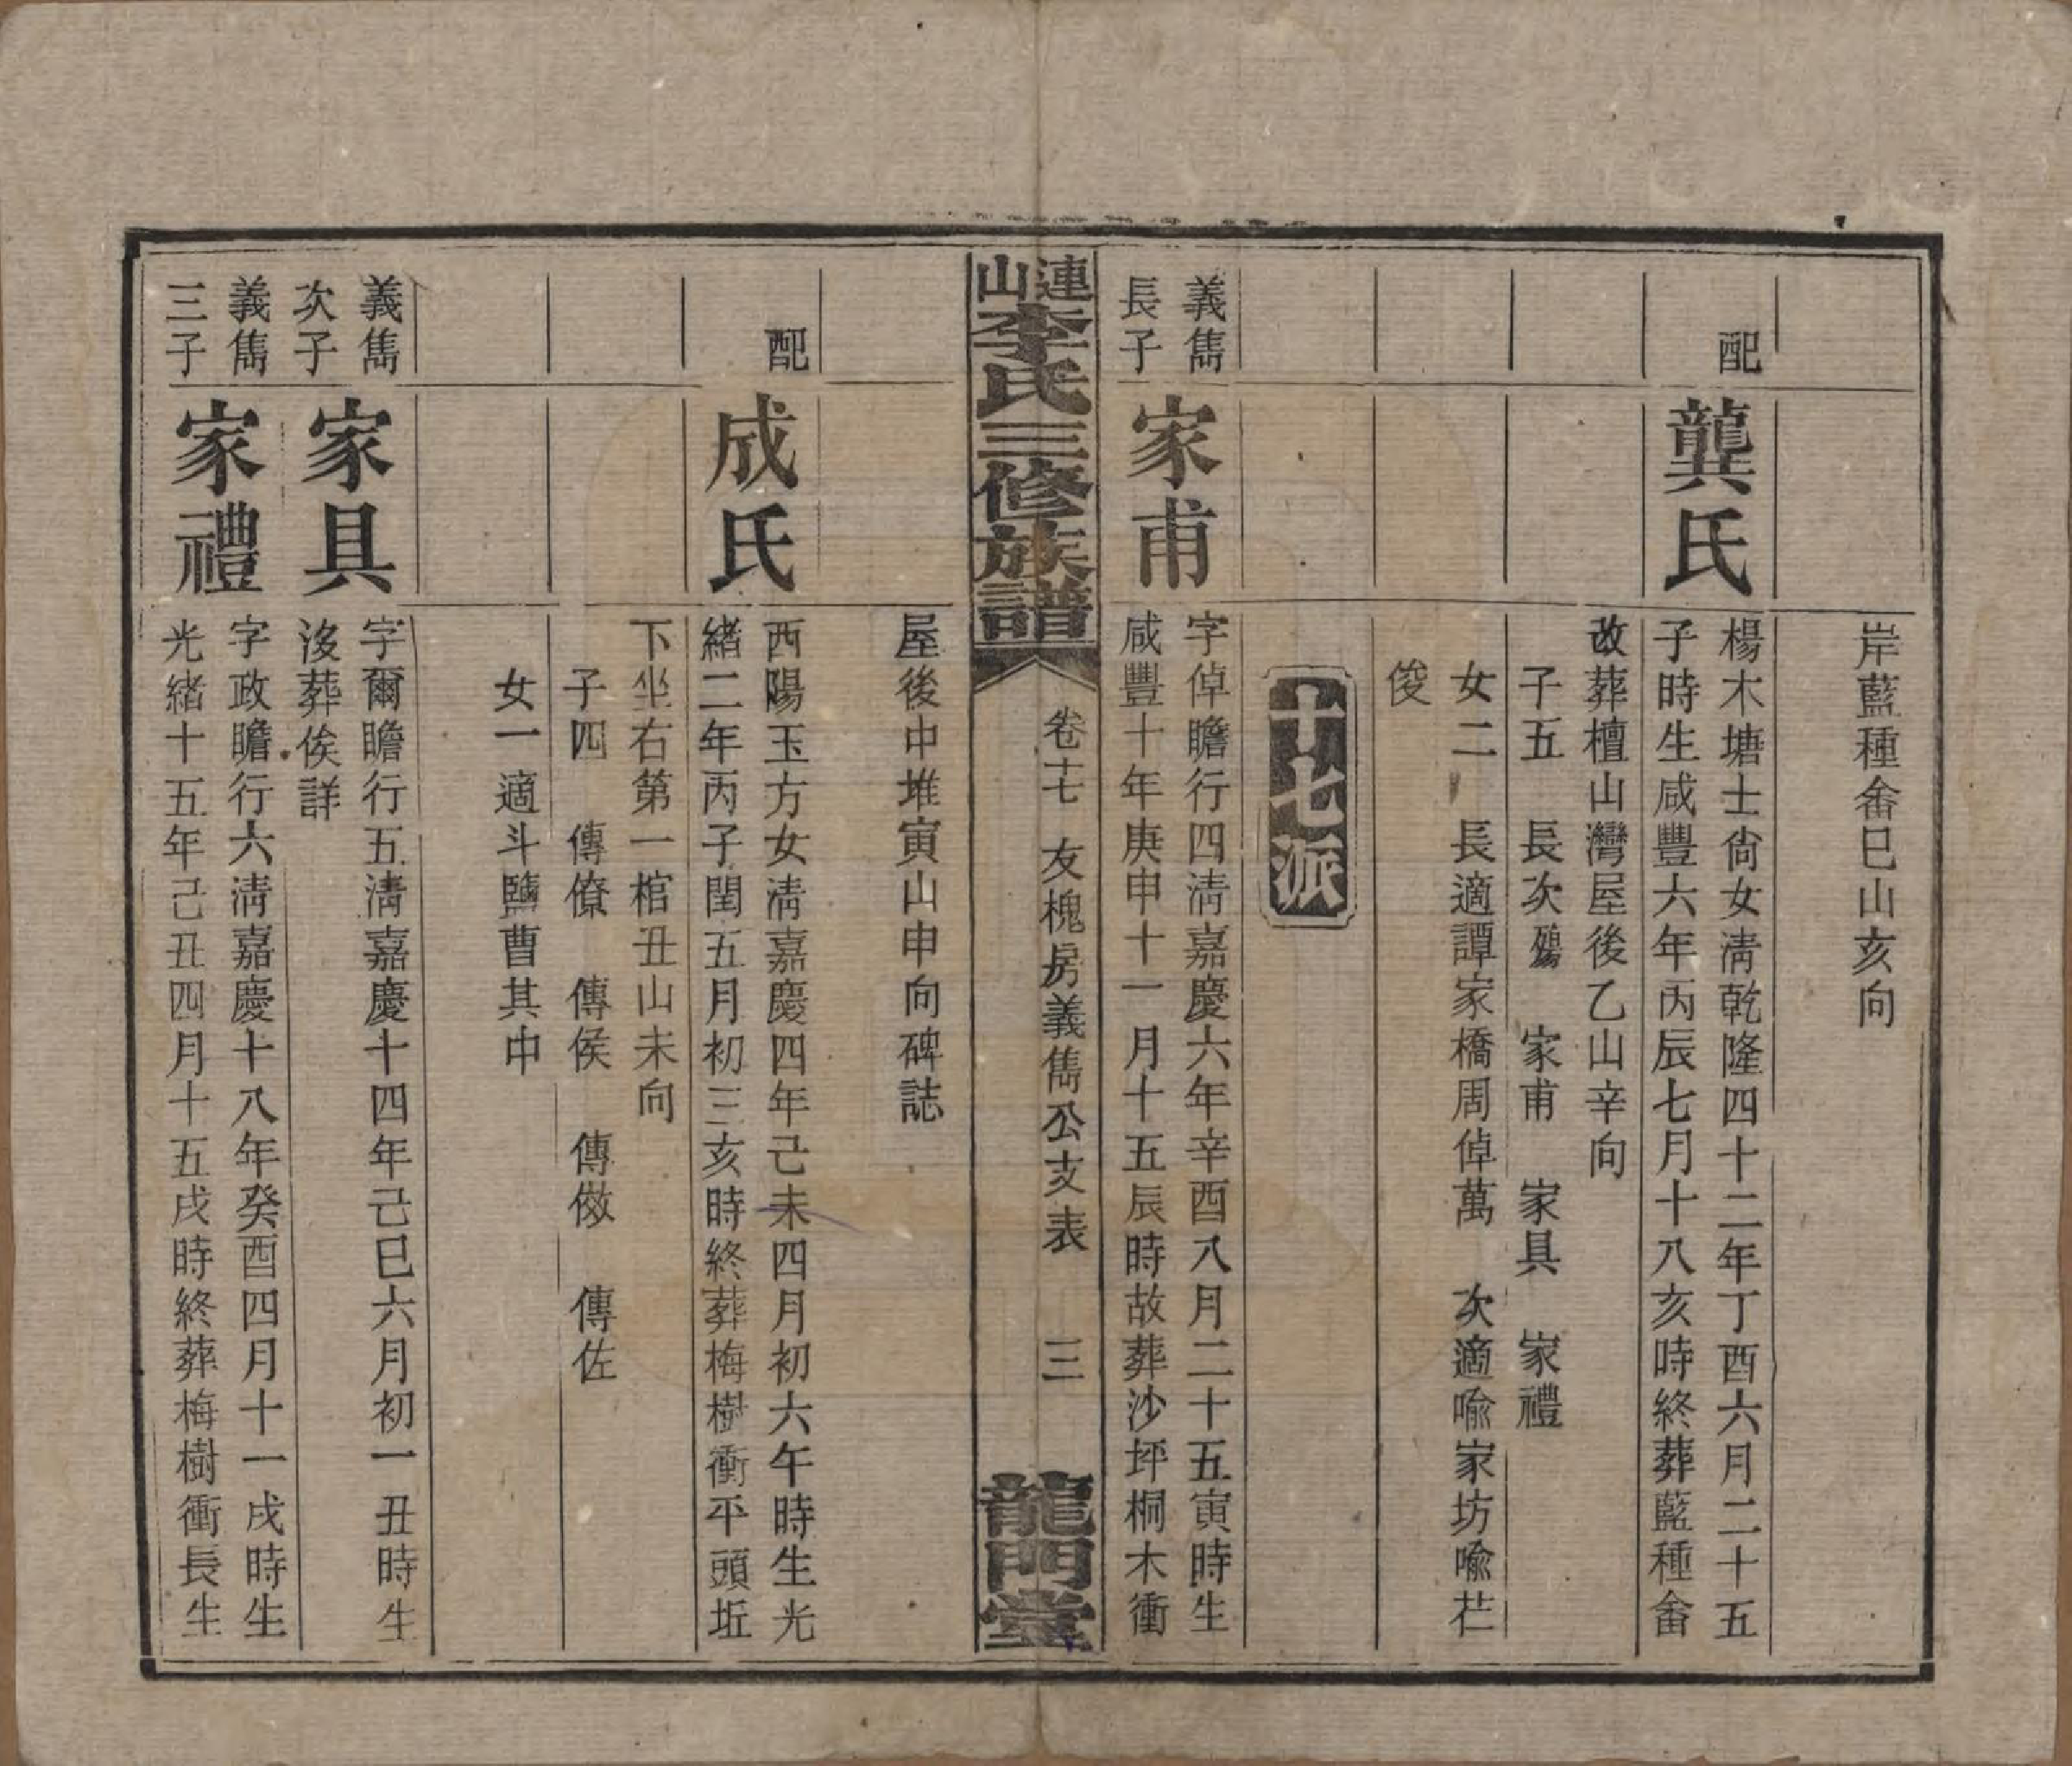 岸藍種畲巳山亥向
配
龔氏
楊木塘士尙女淸乾隆四十二年丁酉六月二十五
子時生咸豐六年丙辰七月十八亥時終葬藍種畲
改葬檀山灣屋後乙山辛向
子五　長次殤　家甫　家具　家禮
女二　長適譚家橋周倬萬　次適喩家坊喩芒
俊
十七派
義雋
長子
家甫
字倬瞻行四淸嘉慶六年辛酉八月二十五寅時生
咸豐十年庚申十一月十五辰時故葬沙坪桐木衝
連山李氏三修族譜
卷十七　友槐房義雋公支表　三
龍門堂
屋後中堆寅山申向碑誌
配
成氏
西陽玉方女淸嘉慶四年己未四月初六午時生光
緒二年丙子閏五月初三亥時終葬梅樹衝平頭坵
下坐右第一棺丑山未向
子四　傳僚　傳侯　傳傚　傳佐
女一適斗鹽曹其中
義雋
次子
家具
字爾瞻行五淸嘉慶十四年己巳六月初一丑時生
沒葬俟詳
義雋
三子
家禮
字政瞻行六淸嘉慶十八年癸酉四月十一戌時生
光緒十五年己丑四月十五戌時終葬梅樹衝長生